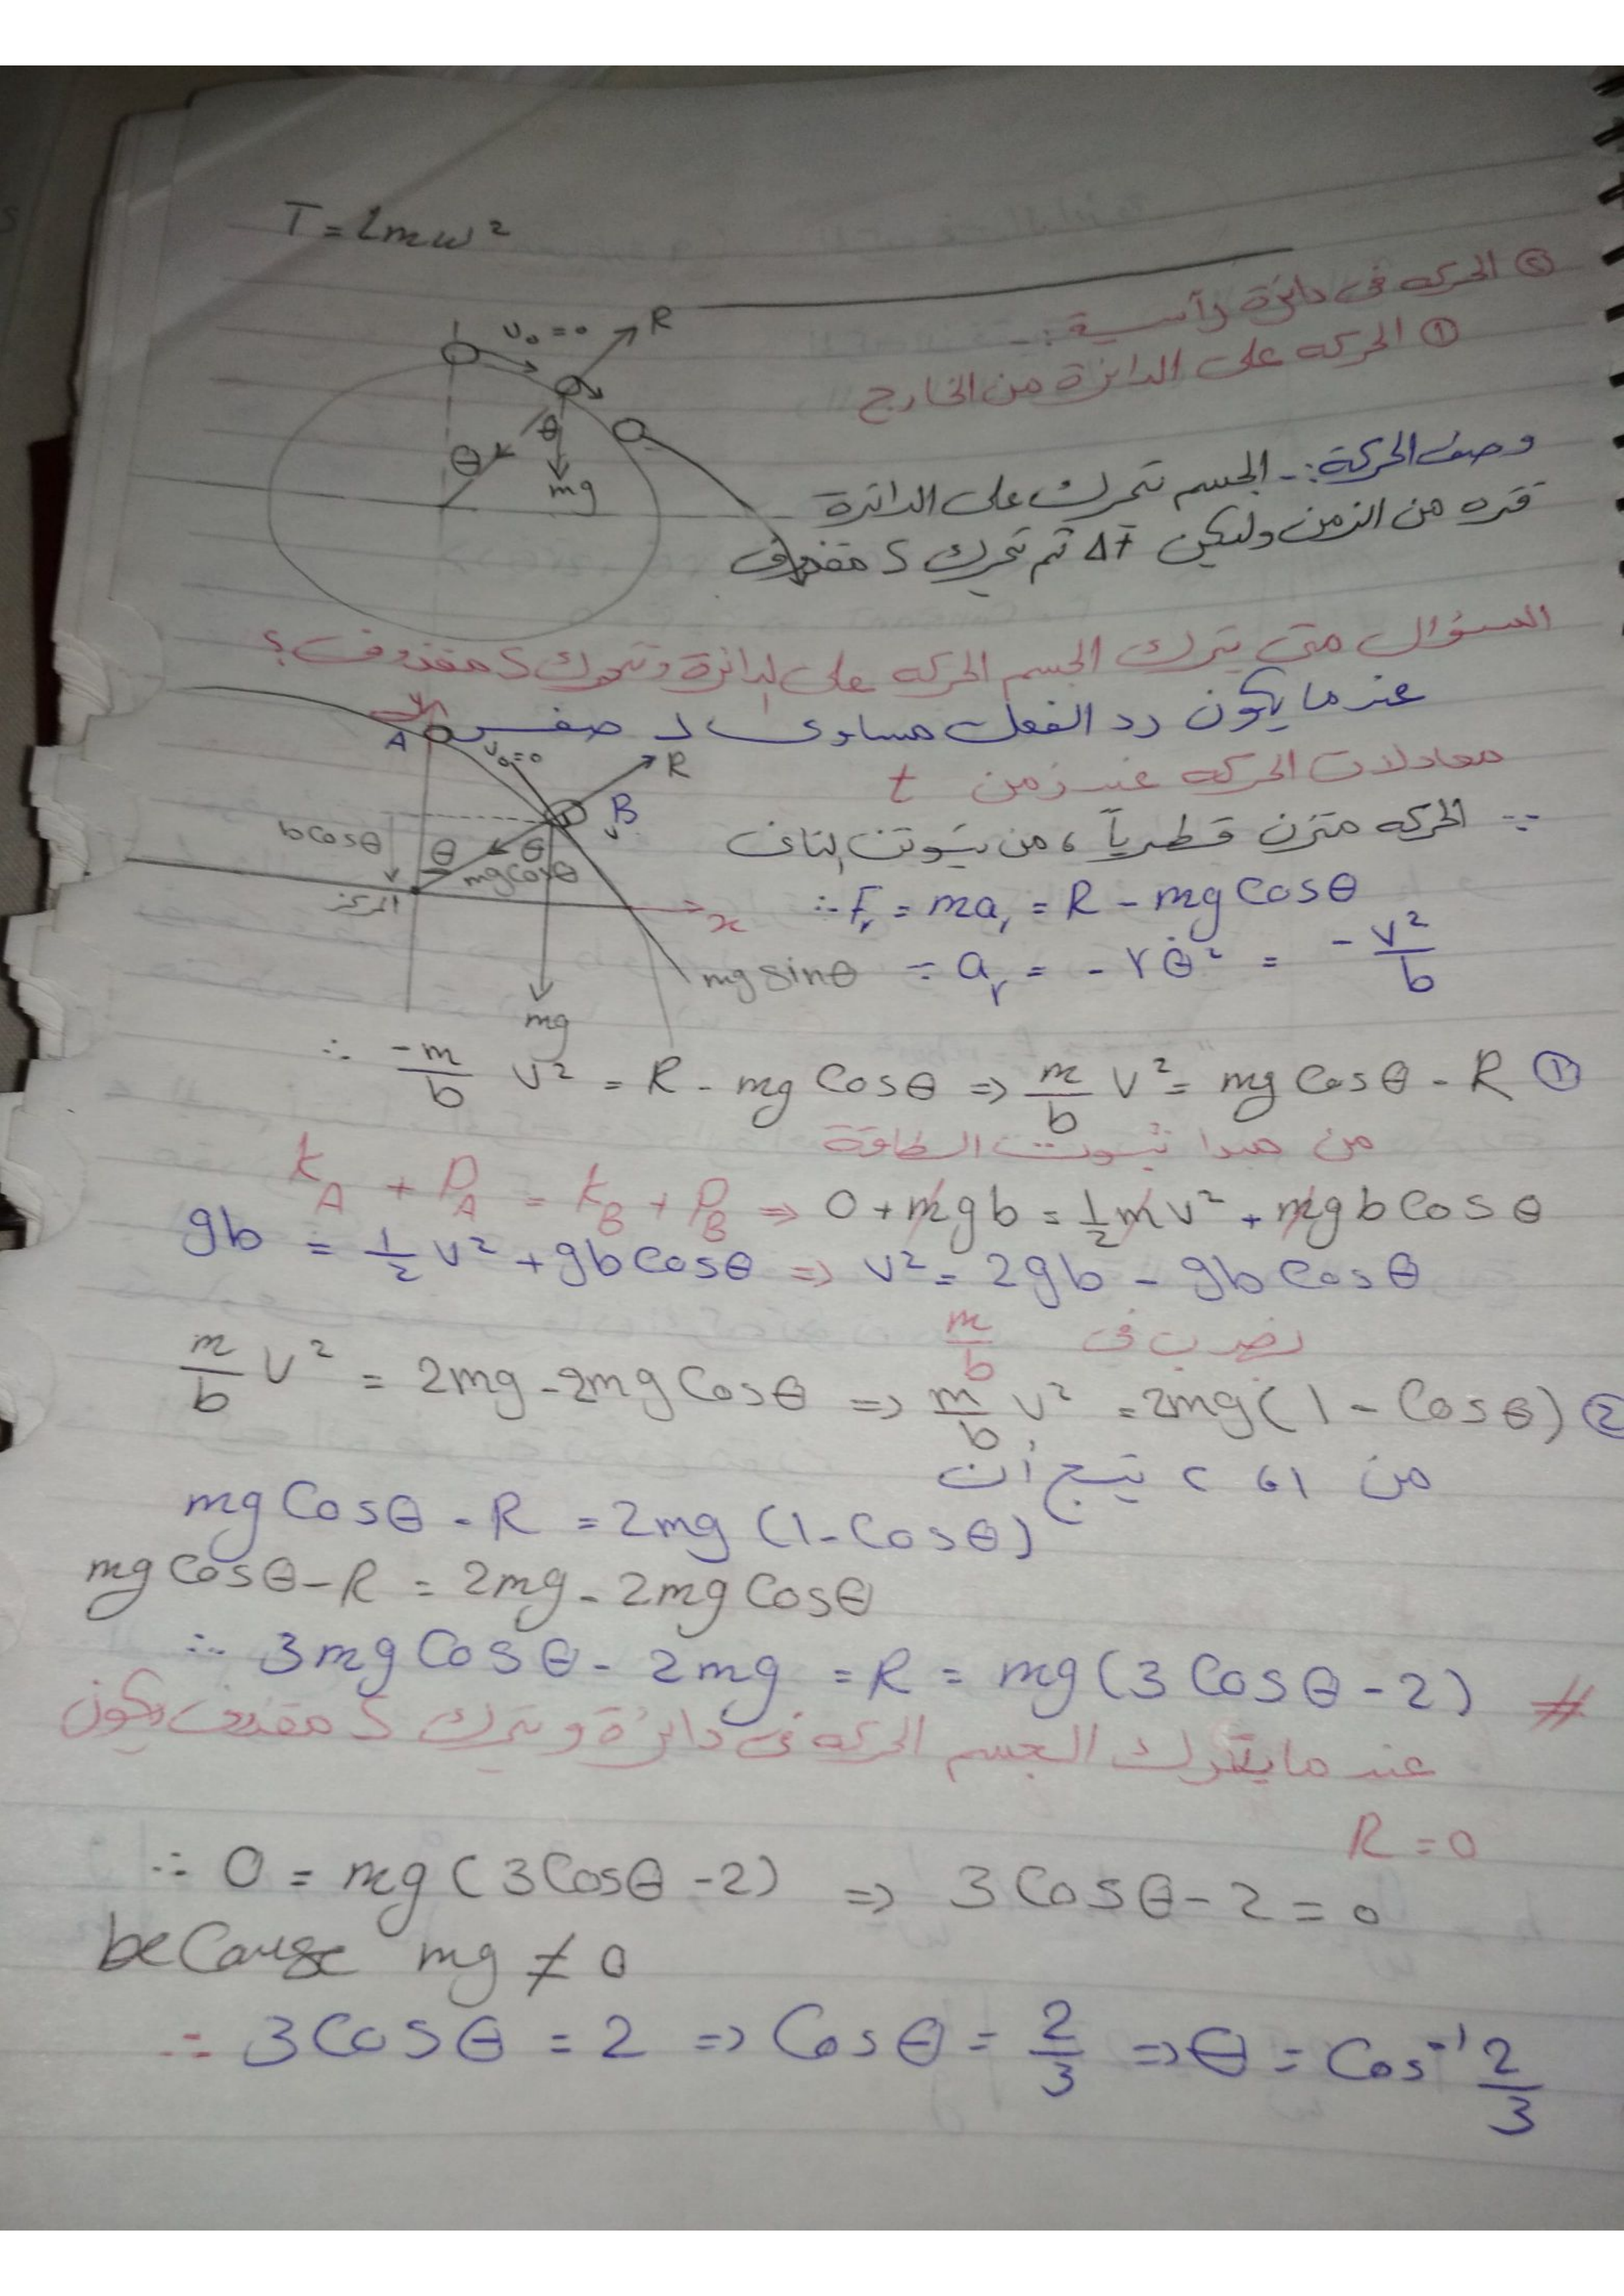 T = lmω²
② الحركه فى دائرة رأسية :-
① الحركه على الدائرة من الخارج
v₀ = 0
R
θ
θ
mg
وصف الحركة :- الجسم تتحرك على الدائرة
فتره من الزمن وليكن Δt ثم تحرك ك مقذوف
السؤال متى يترك الجسم الحركه على الدائرة وتتحرك ك مقذوف ؟
عندما يكون رد الفعل مساوى لـ صفر
معادلات الحركه عند زمن t
y
A
v₀=0
R
B
v
bcosθ
θ
θ
mgcosθ
المركز
x
mg sinθ
mg
∵ الحركه متزن قطرياً ، من نيوتن الثانى
∴ Fᵣ = maᵣ = R - mg Cosθ
∵ aᵣ = - rθ̇² = - v²/b
∴ -m/b v² = R - mg Cosθ ⇒ m/b v² = mg Cosθ - R ①
من مبدا ثبوت الطاقة
K_A + P_A = K_B + P_B ⇒ 0 + mgb = ½mv² + mgbCosθ
gb = ½v² + gbCosθ ⇒ v² = 2gb - gbCosθ
نضرب فى m/b
m/b v² = 2mg - 2mg Cosθ ⇒ m/b v² = 2mg(1 - Cosθ) ②
من 1 ، 2 ينتج أن
mg Cosθ - R = 2mg (1 - Cosθ)
mg Cosθ - R = 2mg - 2mg Cosθ
∴ 3mg Cosθ - 2mg = R = mg(3Cosθ - 2) #
عندما يترك الجسم الحركه فى دائرة و تتحرك ك مقذوف يكون
R = 0
∴ 0 = mg(3Cosθ - 2) ⇒ 3Cosθ - 2 = 0
because mg ≠ 0
∴ 3Cosθ = 2 ⇒ Cosθ = 2/3 ⇒ θ = Cos⁻¹ 2/3